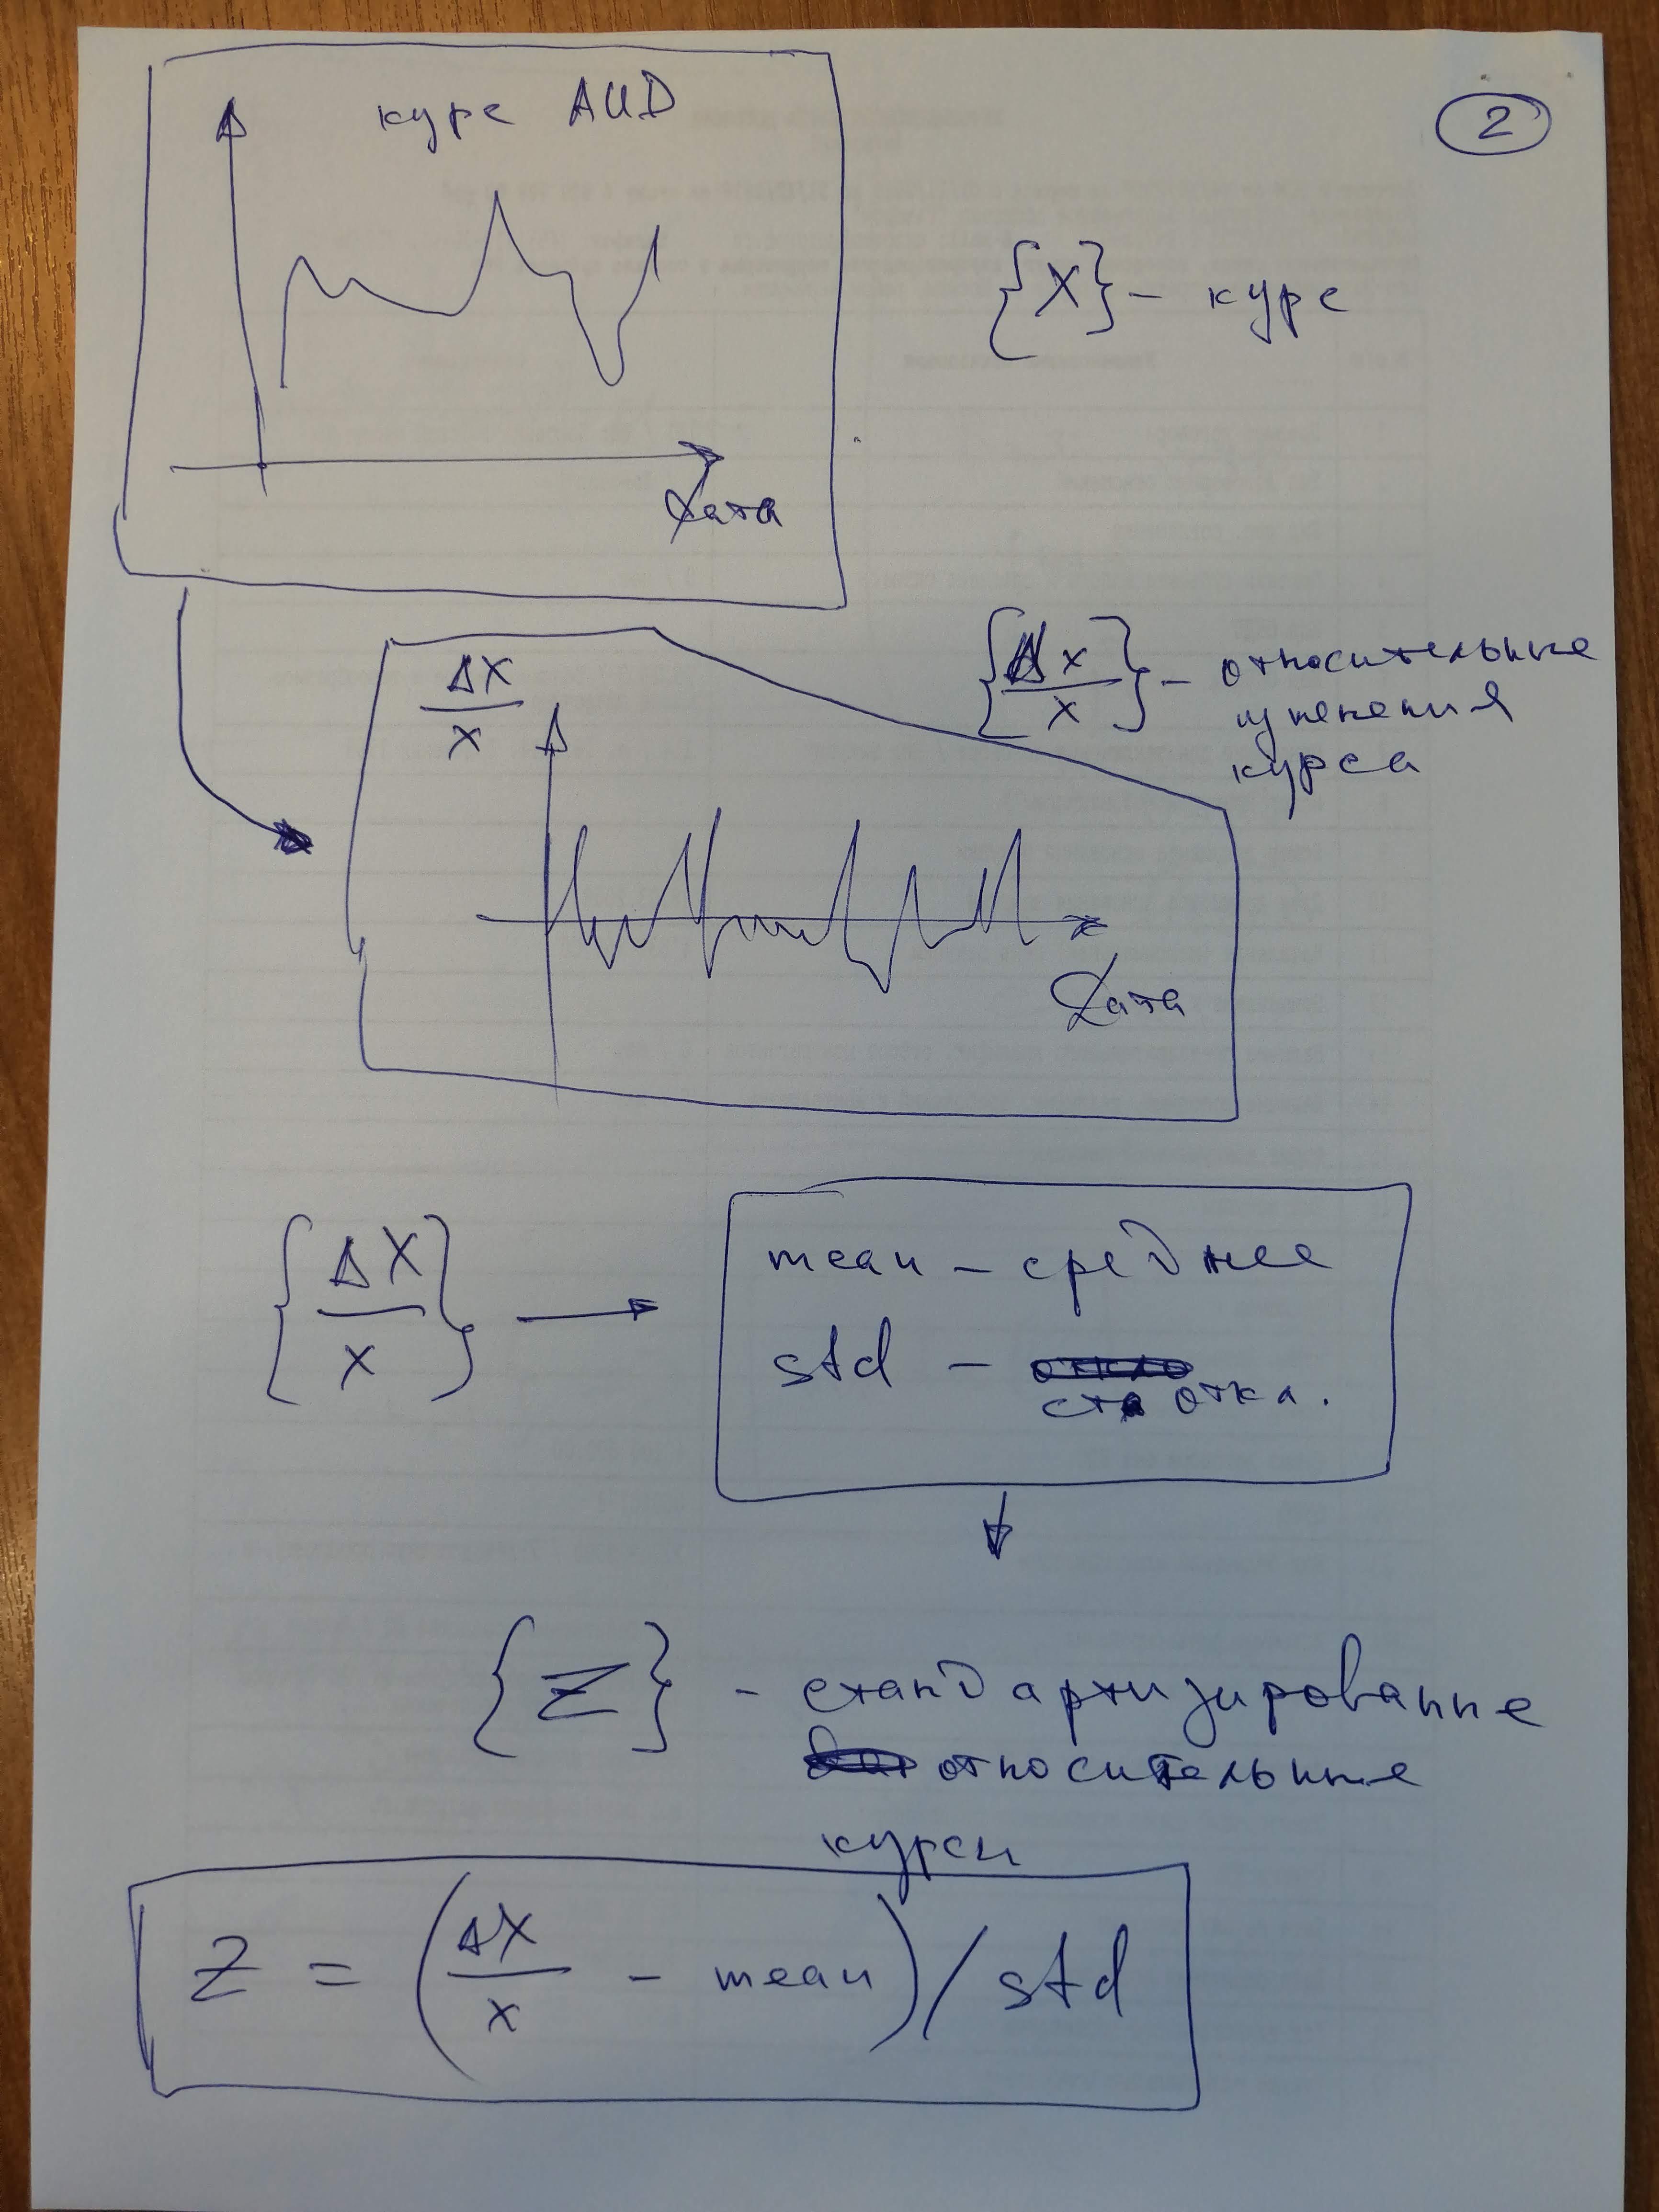 2
курс AUD
{X} - курс
Дата
ΔX/x
{Δx/x} - относительные
изменения
курса
Дата
{ΔX/x} →
mean - среднее
std -
ст откл.
{Z} - стандартизированные
относительные
курсы
Z = (ΔX/x - mean) / std